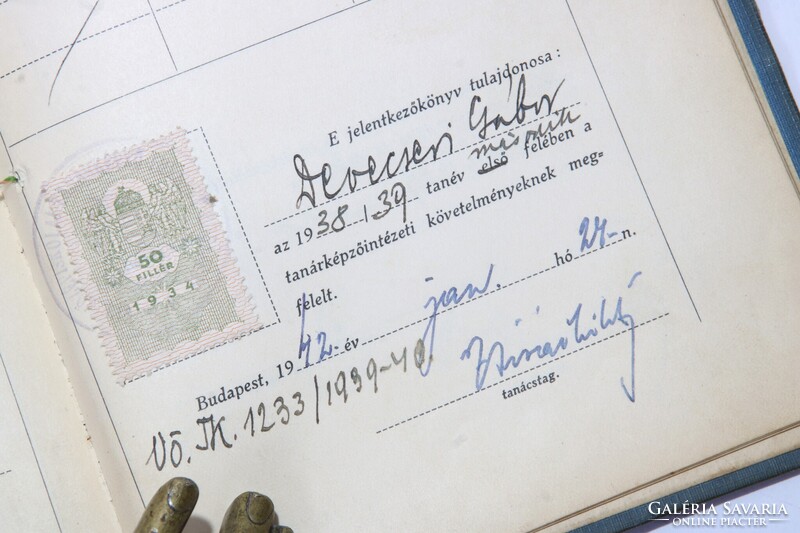 E jelentkezőkönyv tulajdonosa:
Devecseri Gábor
második
az 1938/39 tanév első felében a
tanárképzőintézeti követelményeknek meg-
felelt.
Budapest, 1942. év jan. hó 24-n.
tanácstag.
Vö. TK. 1233/1939-40.
50
FILLÉR
1934
GALÉRIA SAVARIA
ONLINE PIACTÉR